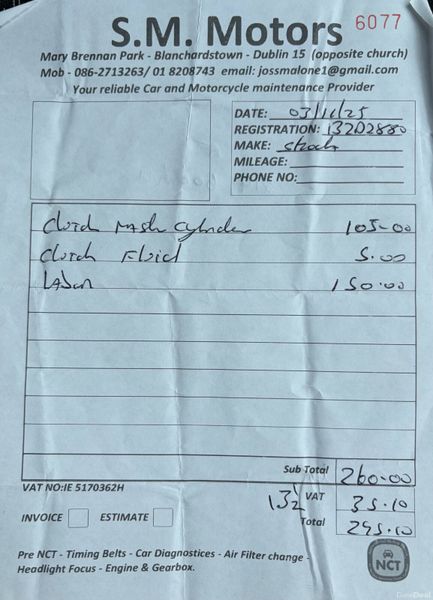 S.M. Motors 6077
Mary Brennan Park - Blanchardstown - Dublin 15 (opposite church)
Mob - 086-2713263/ 01 8208743 email: jossmalone1@gmail.com
Your reliable Car and Motorcycle maintenance Provider
DATE: 03/11/25
REGISTRATION: 132D2880
MAKE:
MILEAGE:
PHONE NO:
Clutch Cylinder 105-00
Clutch Fluid 5.00
Labour 150.00
Sub Total 260-00
VAT NO:IE 5170362H
13½ VAT 35.10
INVOICE ESTIMATE Total 295.10
Pre NCT - Timing Belts - Car Diagnostices - Air Filter change -
Headlight Focus - Engine & Gearbox.
NCT